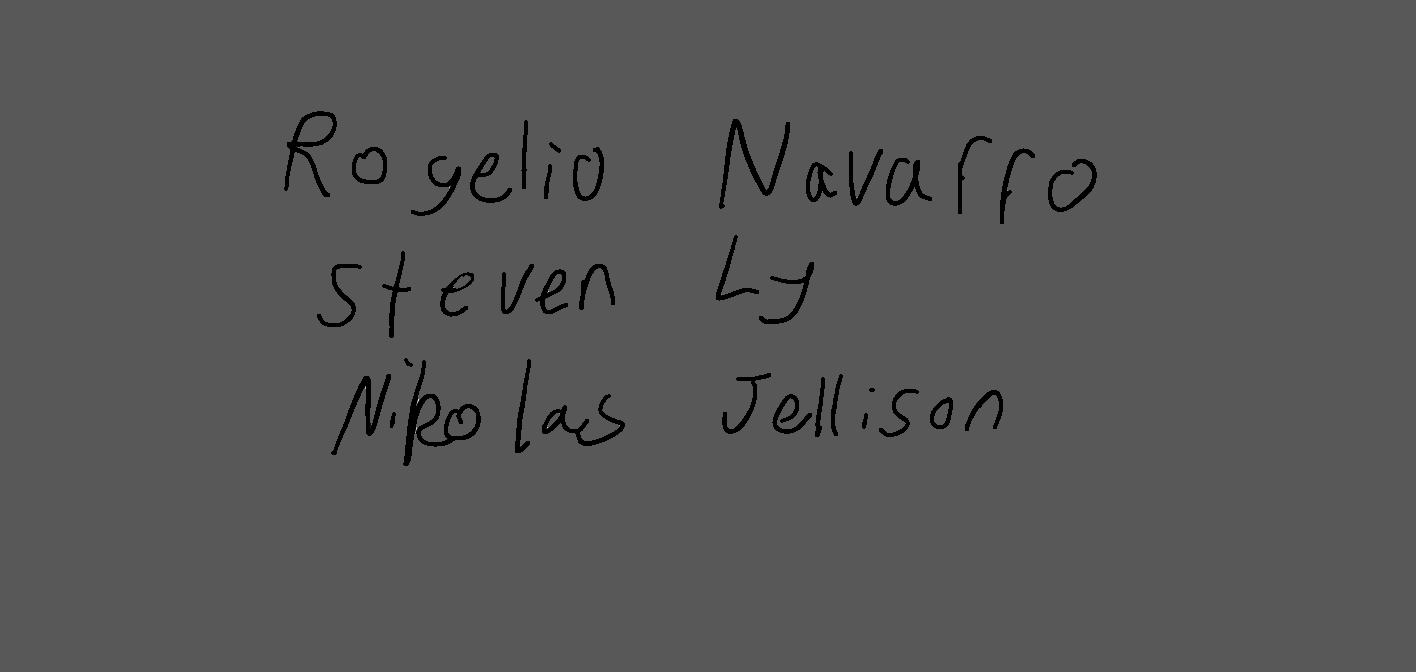 Rogelio Navarro
Steven Ly
Nikolas Jellison